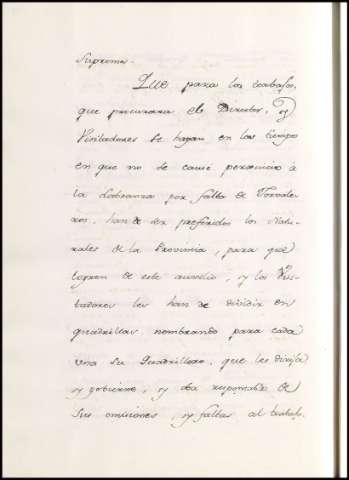 Suprema.
Que para los trabajos,
que procurara el Director, y
Visitadores se hagan en los tiempos
en que no se cause perjuicio à
la Labranza por falta de Jornale-
ros, han de ser preferidos los Natu-
rales de la Provincia, para que
logren de este auxilio, y los Visi-
tadores les han de dividir en
quadrillas, nombrando para cada
una su Quadrillero, que les dirija
y govierne, y sea responsable de
sus omisiones, y faltas al trabajo.